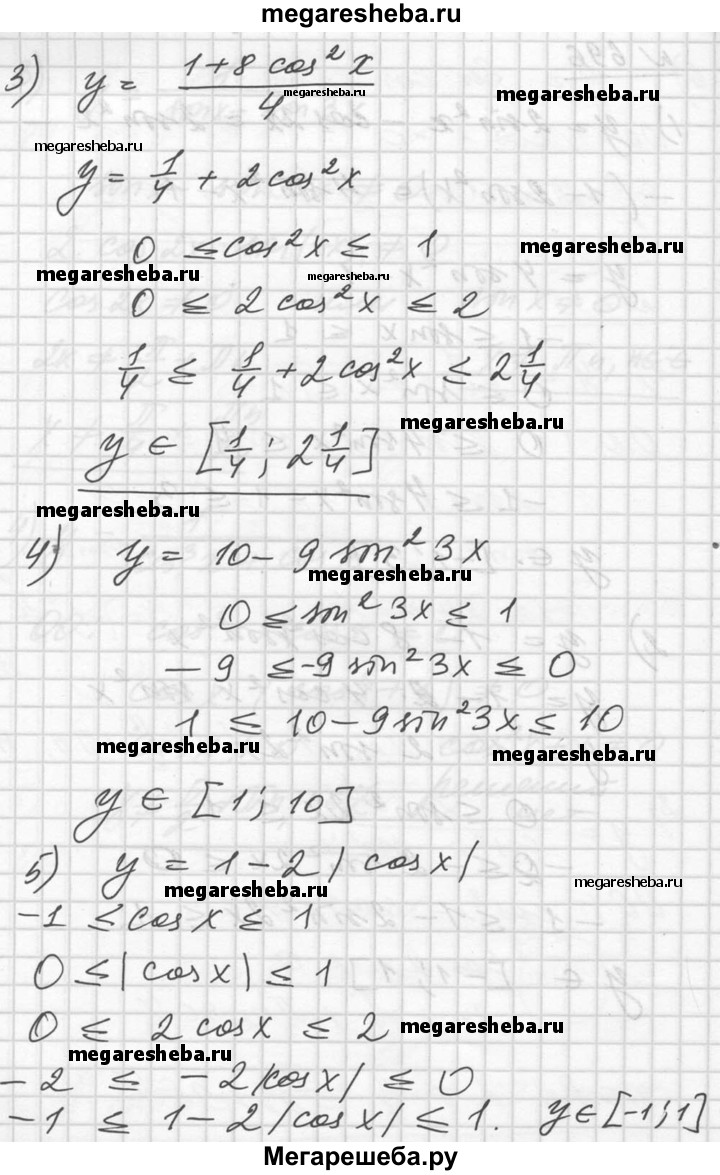 megaresheba.ru
3) y = (1+8 cos²x)/4
megaresheba.ru
megaresheba.ru
megaresheba.ru
y = 1/4 + 2cos²x
0 ≤ cos²x ≤ 1
megaresheba.ru
megaresheba.ru
megaresheba.ru
0 ≤ 2 cos²x ≤ 2
1/4 ≤ 1/4 + 2cos²x ≤ 2 1/4
megaresheba.ru
y ∈ [1/4; 2 1/4]
megaresheba.ru
4) y = 10 - 9 sin²3x
megaresheba.ru
0 ≤ sin²3x ≤ 1
-9 ≤ -9 sin²3x ≤ 0
1 ≤ 10 - 9 sin²3x ≤ 10
megaresheba.ru
megaresheba.ru
y ∈ [1; 10]
5) y = 1 - 2 |cos x|
megaresheba.ru
megaresheba.ru
-1 ≤ cos x ≤ 1
0 ≤ |cos x| ≤ 1
0 ≤ 2 cos x ≤ 2
megaresheba.ru
megaresheba.ru
-2 ≤ -2|cos x| ≤ 0
-1 ≤ 1 - 2|cos x| ≤ 1. y ∈ [-1; 1]
Мегарешеба.ру